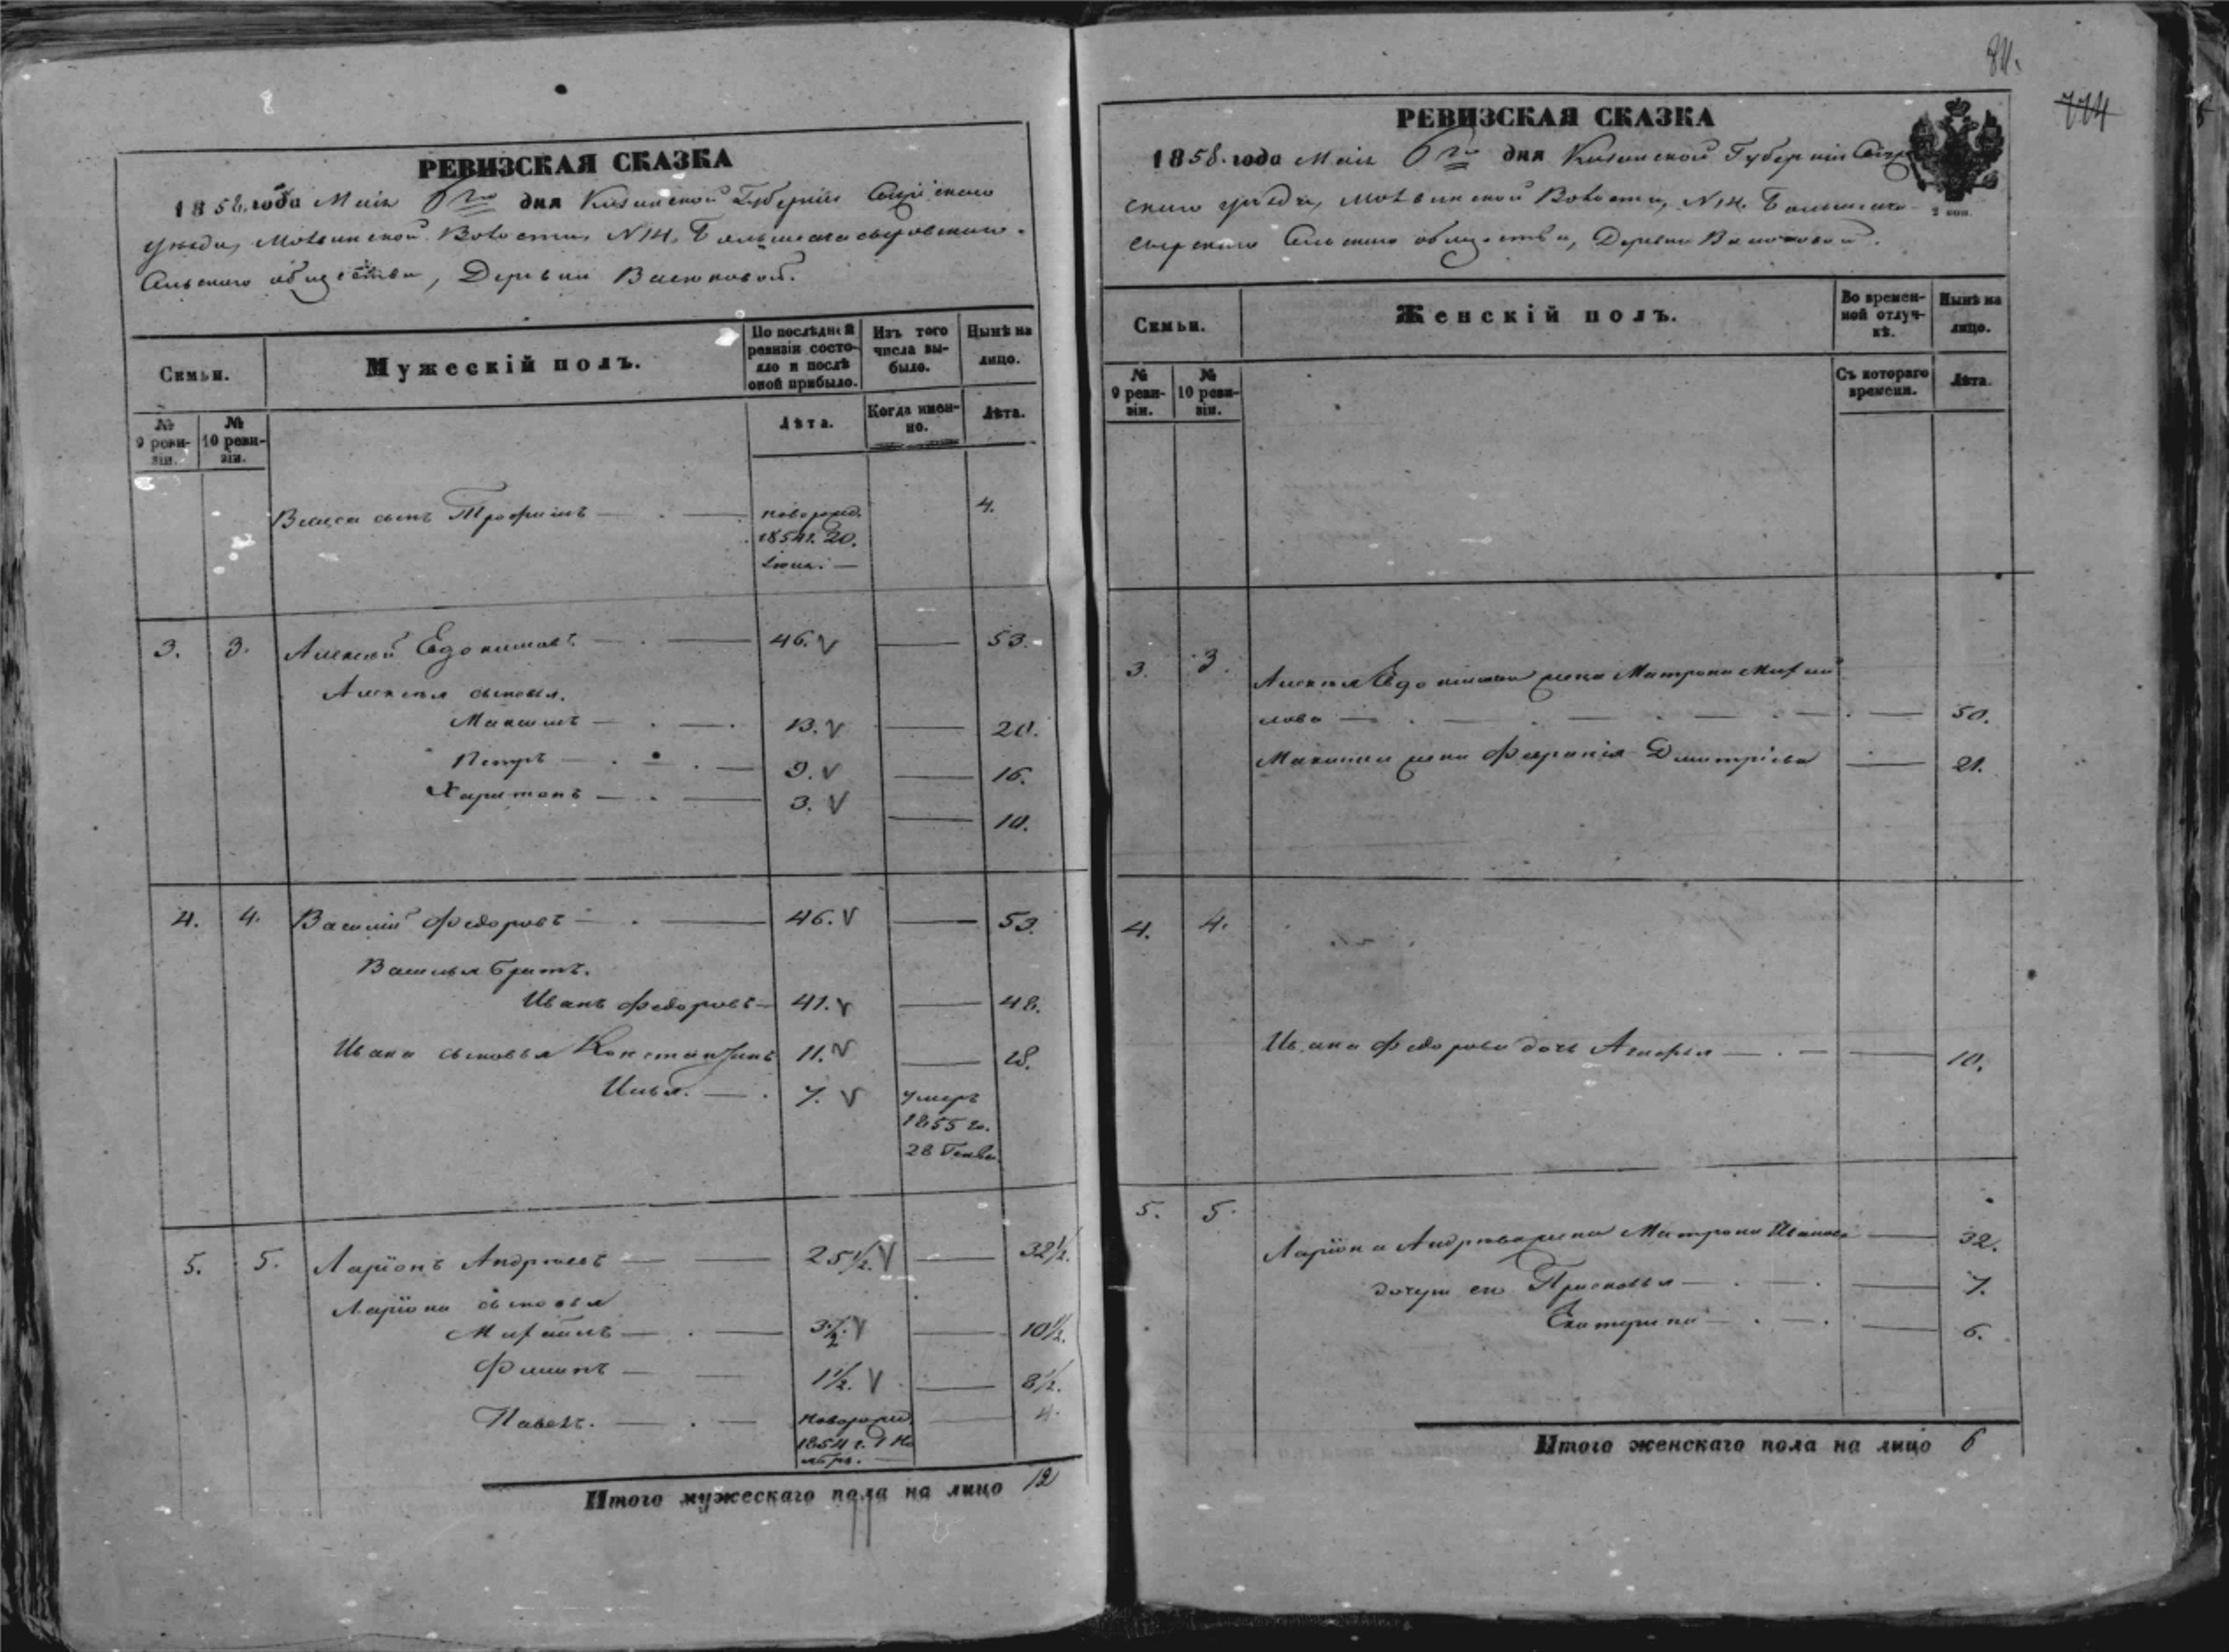 8
РЕВИЗСКАЯ СКАЗКА
1858 года Маія 6го дня Казанской Губерніи
уѣзда, Волости, N 14.
Сельскаго общества, Деревни Васюковой.
Семьи.
Мужескій полъ.
По послѣдней ревизіи состояло и послѣ оной прибыло.
Изъ того числа выбыло.
Нынѣ на лицо.
№ 9 ревизіи.
№ 10 ревизіи.
Лѣта.
Когда именно.
Лѣта.
сынъ Трофимъ новорожд. 4.
1854 г. 20.
3. 3. Алексѣй Евдокимовъ 46. 53.
Алексѣя сыновья.
Максимъ 13. 20.
Петръ 9. 16.
Харитонъ 3. 10.
4. 4. Василій Федоровъ 46. 53.
Василья братъ.
Иванъ Федоровъ 41. 48.
Ивана сыновья Константинъ 11. 18.
Илья. 7. умеръ
1855 г.
28 Генва.
5. 5. Ларіонъ Андреевъ 25 1/2. 32 1/2.
Ларіона сыновья
Михайлъ 3 1/2. 10 1/2.
Филипъ 1 1/2. 8 1/2.
Павелъ. новорожд. 4.
1854 г. 1 Но
ябрь.
Итого мужескаго пола на лицо 12
84.
774
РЕВИЗСКАЯ СКАЗКА
1858 года Маія 6го дня Казанской Губерніи
скаго уѣзда, Волости, N 14.
Сельскаго общества, Деревни Васюковой.
2 коп.
Семьи.
Женскій полъ.
Во временной отлучкѣ.
Нынѣ на лицо.
№ 9 ревизіи.
№ 10 ревизіи.
Съ котораго времени.
Лѣта.
3. 3. Алексѣя Евдокимова жена Матрона Михай
лова 50.
Максима жена Дмитріева 21.
4. 4.
Ивана Федорова дочь Агафья 10.
5. 5.
Ларіона Андреева жена Матрона Иванова 32.
дочери его Прасковья 7.
Екатерина 6.
Итого женскаго пола на лицо 6